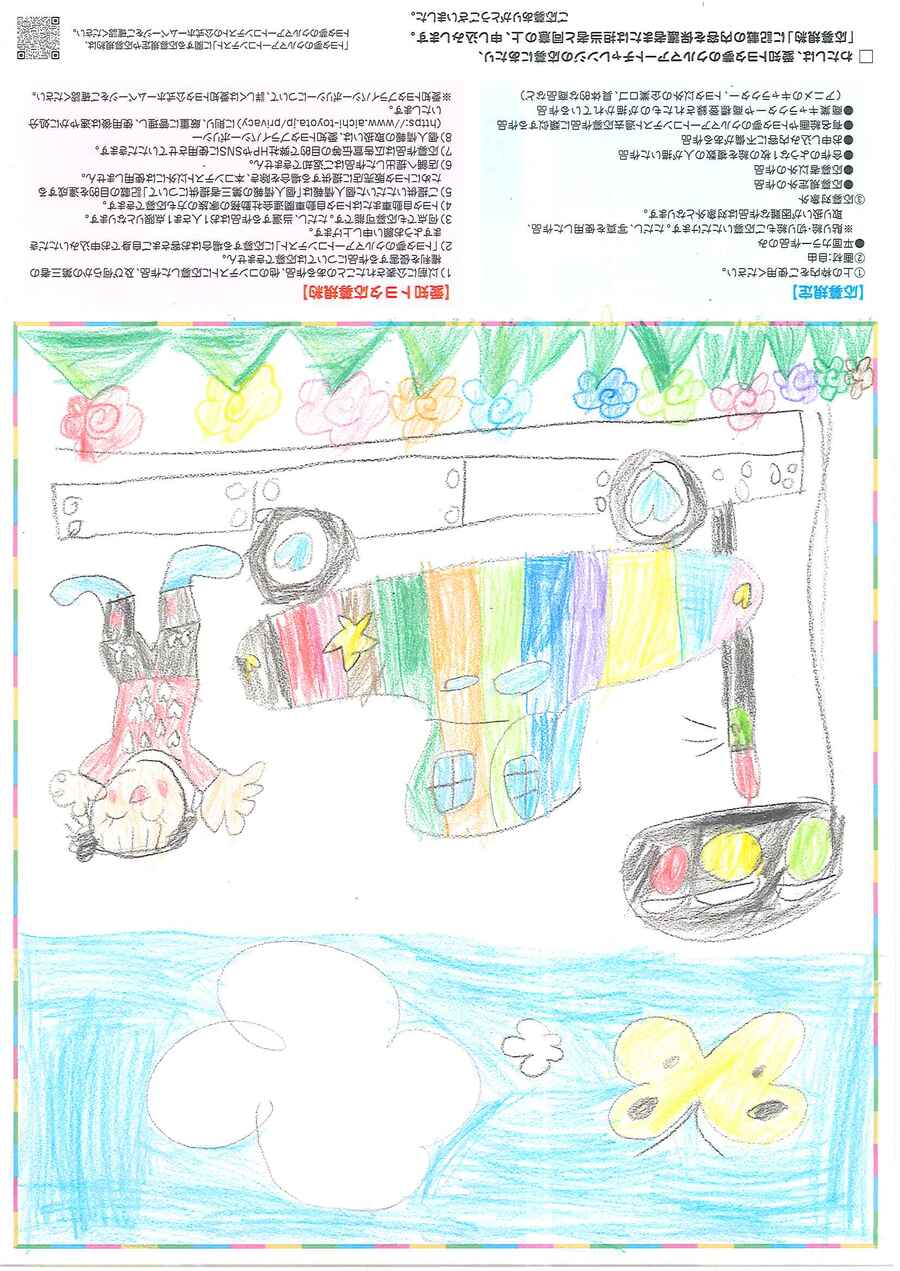 【応募規定】
①上の枠内をご使用ください。
②画材:自由
●平面カラー作品のみ
※貼り絵・切り絵もご応募いただけます。ただし、写真を使用した作品、
取り扱いが困難な作品は対象外となります。
③応募対象外
●応募規定外の作品
●応募者以外の作品
●合作のような1枚の絵を複数の人が描いた作品
●お申し込み内容に不備がある作品
●有名絵画やトヨタ夢のクルマアートコンテスト過去応募作品に類似する作品
●商業キャラクターや商標登録されたものが描かれている作品
(アニメのキャラクター、トヨタ以外の企業ロゴ、具体的な商品など)
【愛知トヨタ応募規約】
1)以前に公表されたことのある作品、他のコンテストに応募した作品、及び何らかの第三者の
権利を侵害する作品についてはご応募いただけません。
2)「トヨタ夢のクルマアートコンテスト」に応募する場合はお客さまご自身でお申込みいただき
ますようお願い申し上げます。
3)何点でも応募可能です。ただし、当選する作品はお1人さま1点限りとなります。
4)トヨタ自動車またはトヨタ自動車関連会社勤務の家族の方も応募できます。
5)ご提供いただいた個人情報は「個人情報の第三者提供について」記載の目的を達成する
ためにトヨタ販売店に提供する場合を除き、本コンテスト以外には使用しません。
6)店舗へ提出した作品はご返却できません。
7)応募作品は広告宣伝等の目的で弊社HPやSNSに使用させていただきます。
8)個人情報の取扱いは、愛知トヨタプライバシーポリシー
(https://www.aichi-toyota.jp/privacy/)に則り、厳重に管理し、使用後は速やかに処分
いたします。
※愛知トヨタプライバシーポリシーについて、詳しくは愛知トヨタ公式ホームページをご確認ください。
□わたしは、愛知トヨタ夢のクルマアートチャレンジへの応募にあたり、
「応募規約」に記載の内容を保護者または担当者と同意の上、申し込みします。
ご応募ありがとうございました。
「トヨタ夢のクルマアートコンテスト」に関する応募規定や応募規約は、
トヨタ夢のクルマアートコンテストの公式ホームページをご確認ください。